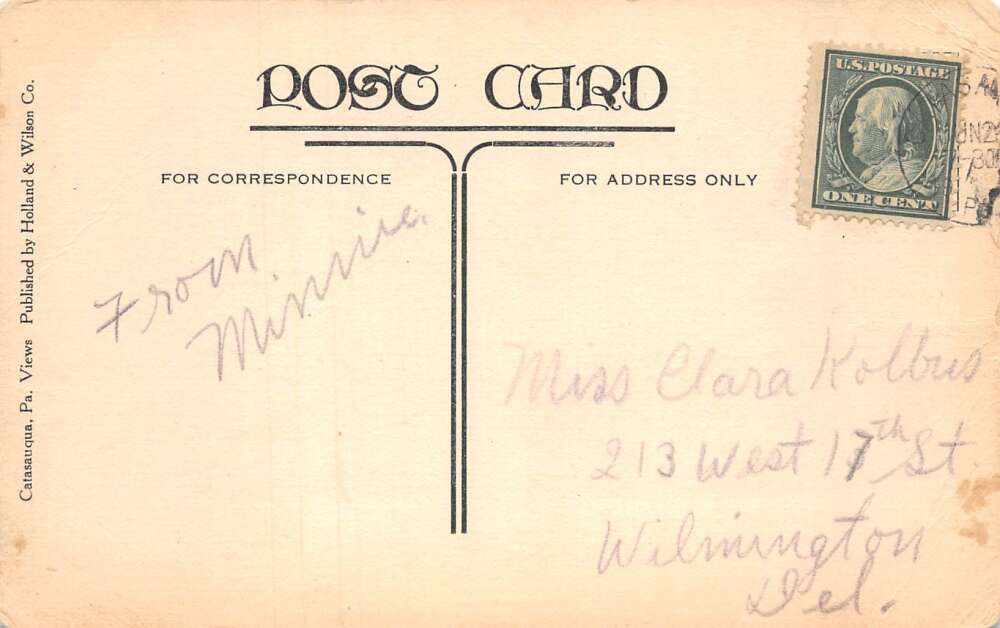 POST CARD
FOR CORRESPONDENCE
FOR ADDRESS ONLY
U.S. POSTAGE
ONE CENT
From
Minnie.
Miss Clara Kolbus
213 West 17th St.
Wilmington
Del.
Catasauqua, Pa. Views Published by Holland & Wilson Co.